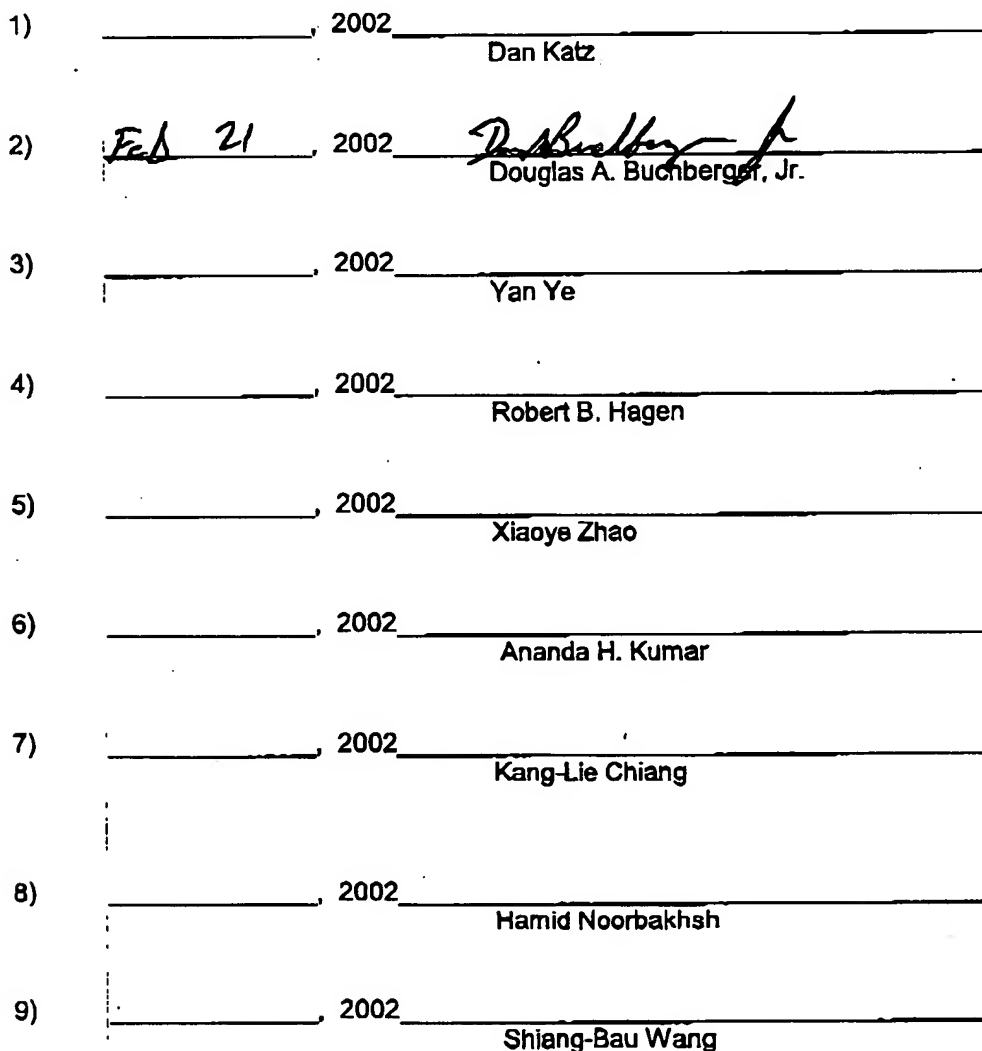 1) ____________, 2002____________
Dan Katz
2) Feb 21, 2002 Douglas A. Buchberger Jr
Douglas A. Buchberger, Jr.
3) ____________, 2002____________
Yan Ye
4) ____________, 2002____________
Robert B. Hagen
5) ____________, 2002____________
Xiaoye Zhao
6) ____________, 2002____________
Ananda H. Kumar
7) ____________, 2002____________
Kang-Lie Chiang
8) ____________, 2002____________
Hamid Noorbakhsh
9) ____________, 2002____________
Shiang-Bau Wang